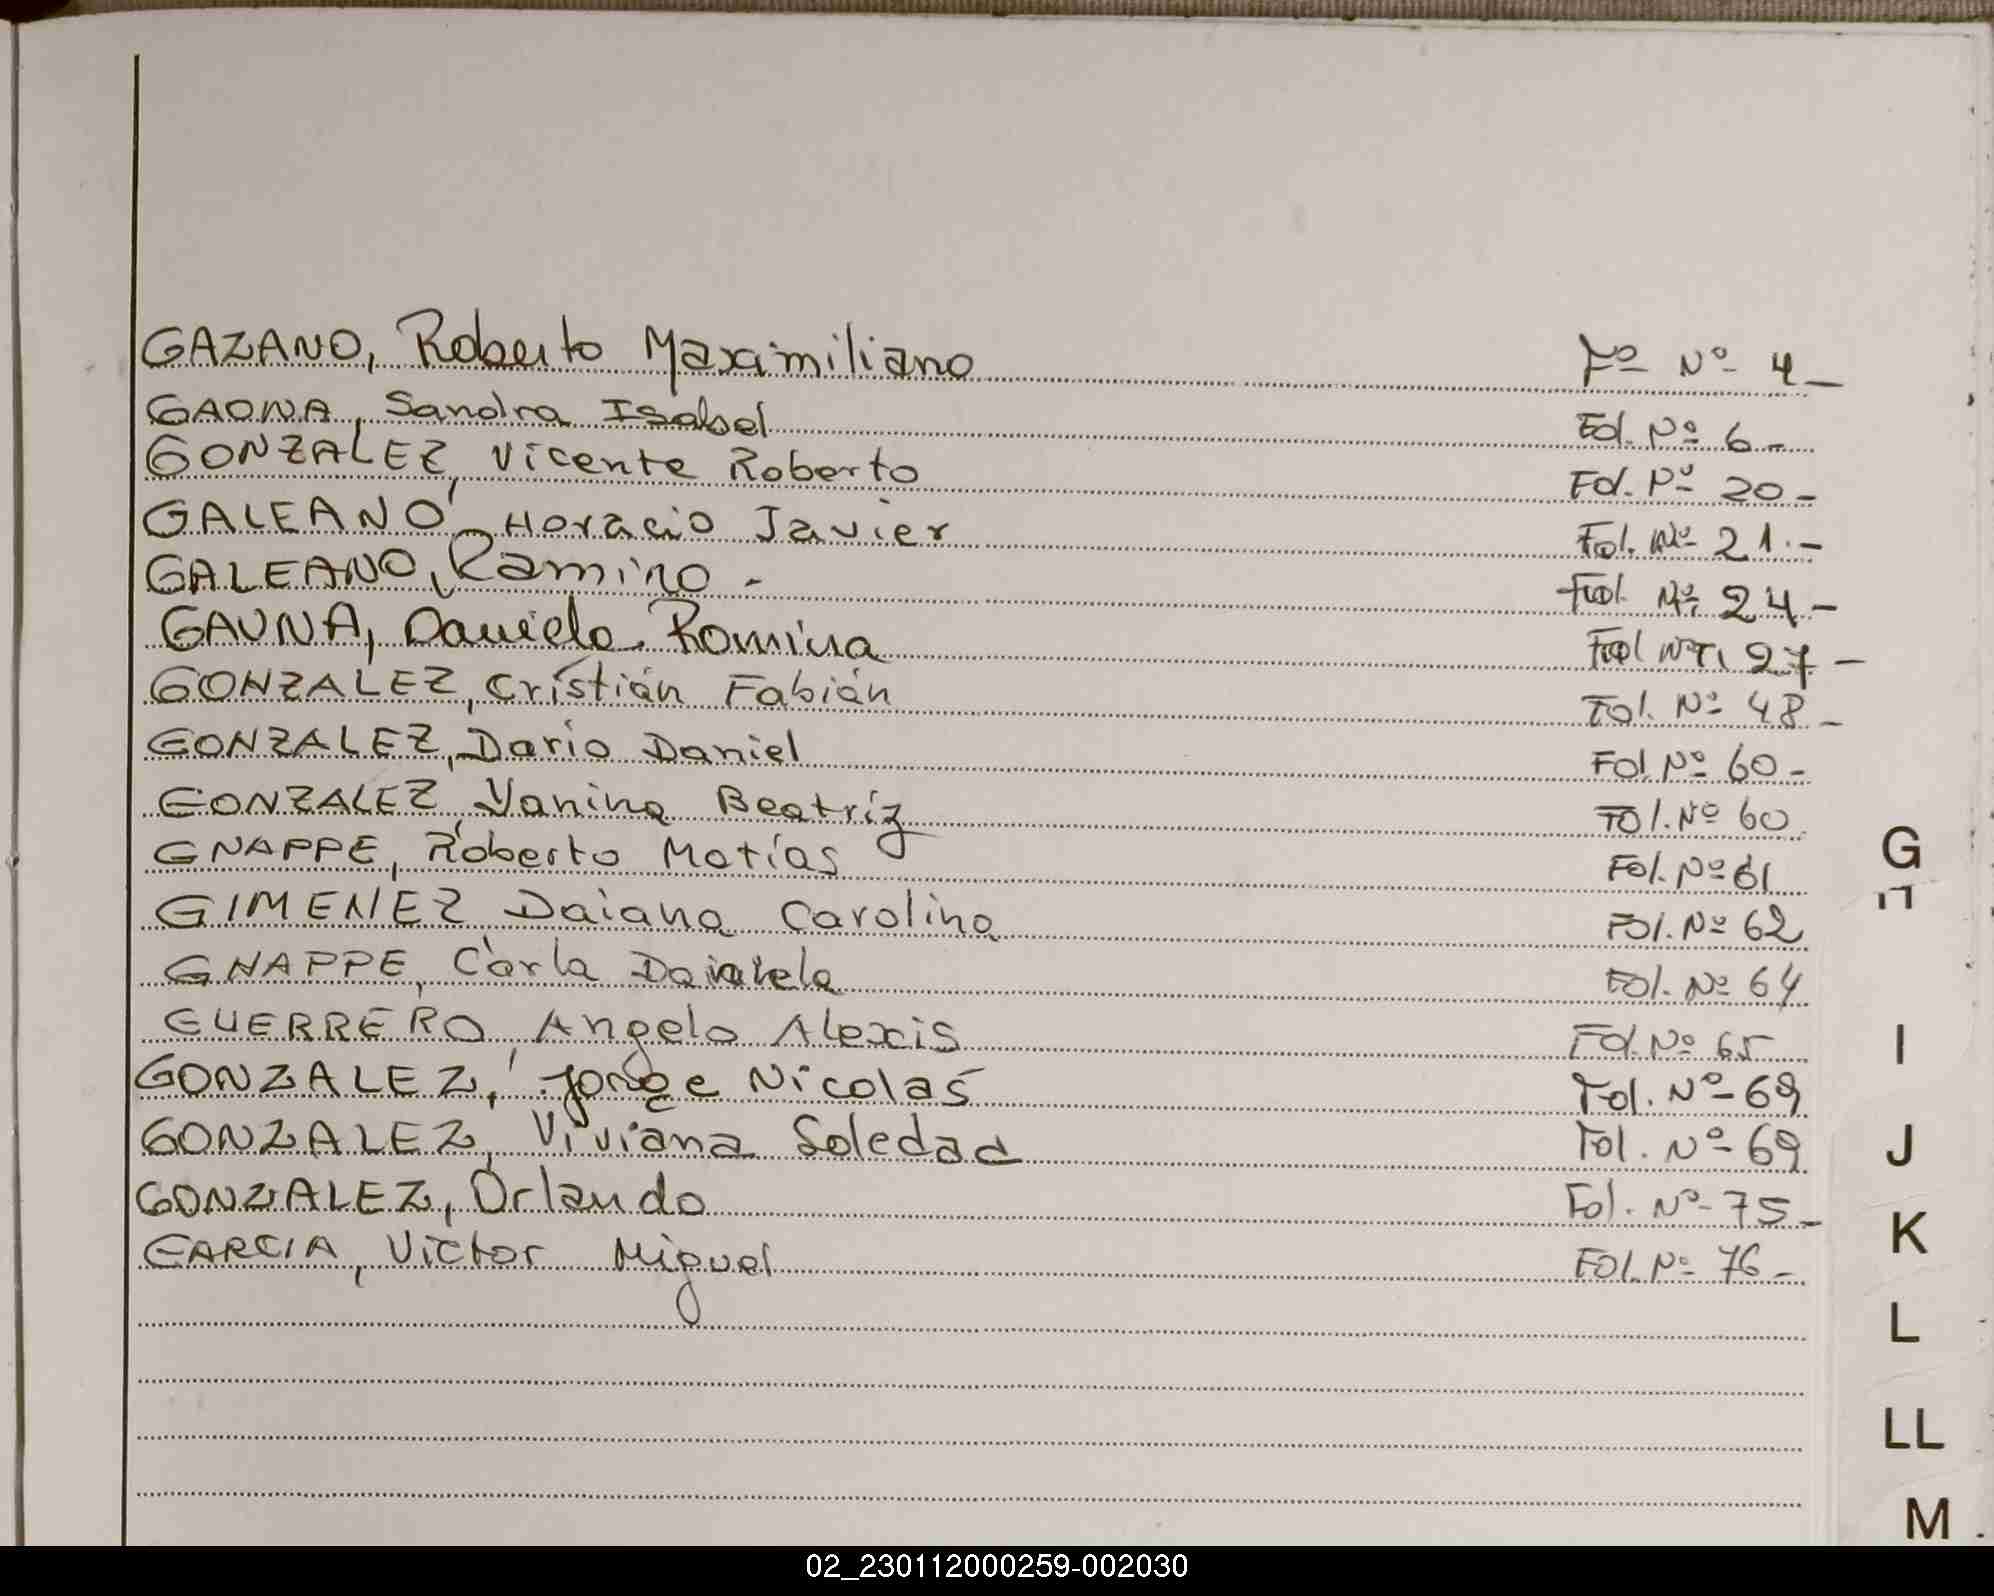 GAZANO, Roberto Maximiliano Fº Nº 4_
GAONA, Sandra Isabel Fol. Nº 6-
GONZALEZ, Vicente Roberto Fol. Nº 20-
GALEANO, Horacio Javier Fol. Nº 21.-
GALEANO, Ramiro - Fol Nº 24-
GAUNA, Daniela Romina Fol Nº 27-
GONZALEZ, Cristián Fabián Fol. Nº 48-
GONZALEZ, Dario Daniel Fol Nº 60-
GONZALEZ, Yanina Beatríz Fol. Nº 60
GNAPPE, Roberto Matías Fol. Nº 61
GIMENEZ Daiana Carolina Fol. Nº 62
GNAPPE, Carla Fol. Nº 64
GUERRERO, Angelo Alexis Fol. Nº 65
GONZALEZ, Jorge Nicolas Fol. Nº 69
GONZALEZ, Viviana Soledad Fol. Nº 69
GONZALEZ, Orlando Fol. Nº 75-
GARCIA, Victor Miguel Fol. Nº 76-
G
I
J
K
L
LL
M
02_230112000259-002030